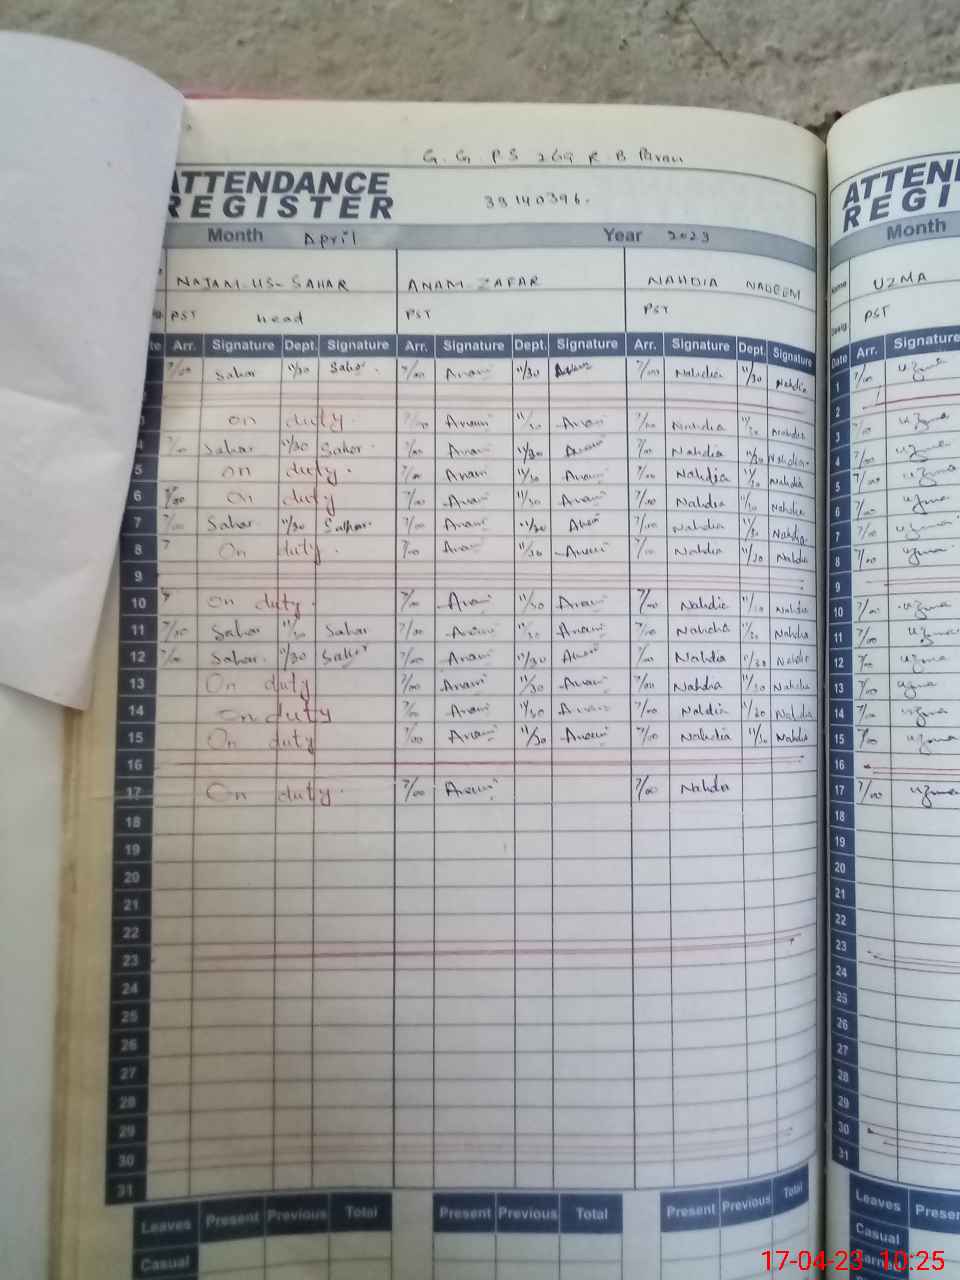 G. G. PS 269 R B
ATTENDANCE
REGISTER
33140396.
Month April Year 2023
NAJAM-US-SAHAR ANAM ZAFAR NAHDIA NADEEM
PST head PST PST
Arr. Signature Dept. Signature Arr. Signature Dept. Signature Arr. Signature Dept. Signature
7/00 Sahar 11/30 Sahar. 7/00 Anam 11/30 Anam 7/00 Nahdia 11/30 Nahdia
on duty. Anam 11/30 Anam 7/00 Nahdia 11/30 Nahdia
4 7/00 Sahar 11/30 Sahar. 7/00 Anam 11/30 Anam 7/00 Nahdia 11/30 Nahdia.
5 on duty. 7/00 Anam 11/30 Anam 7/00 Nahdia 11/30 Nahdia
6 on duty 7/00 Anam 11/30 Anam 7/00 Nahdia 11/30 Nahdia
7 7/00 Sahar 11/30 Sahar. 7/00 Anam 11/30 Anam 7/00 Nahdia 11/30 Nahdia
8 7 On duty. 7/00 Anam 11/30 Anam 7/00 Nahdia 11/30 Nahdia
9
10 On duty. 7/00 Anam 11/30 Anam 7/00 Nahdia 11/30 Nahdia
11 7/00 Sahar 11/30 Sahar 7/00 Anam 11/30 Anam 7/00 Nahdia 11/30 Nahdia
12 7/00 Sahar. 11/30 Sahar 7/00 Anam 11/30 Anam 7/00 Nahdia 11/30 Nahdia
13 On duty 7/00 Anam 11/30 Anam 7/00 Nahdia 11/30 Nahdia
14 On duty 7/00 Anam 11/30 Anam 7/00 Nahdia 11/30 Nahdia
15 On duty 7/00 Anam 11/30 Anam 7/00 Nahdia 11/30 Nahdia
16
17 On duty. 7/00 Anam 7/00 Nahdia
18
19
20
21
22
23
24
25
26
27
28
29
30
31
Leaves Present Previous Total Present Previous Total Present Previous Total
Casual
REGI
Month
Name UZMA
Desig. PST
Date Arr. Signature
1 7/00 uzma
2
3 7/00 uzma
4 7/00 uzma
5 7/00 uzma
6 7/00 uzma
7 7/00 uzma
8 7/00 uzma
9
10 7/00 uzma
11 7/00 uzma
12 7/00 uzma
13 7/00 uzma
14 7/00 uzma
15 7/00 uzma
16
17 7/00 uzma
18
19
20
21
22
23
24
25
26
27
28
29
30
31
Leaves
Casual
17-04-23 10:25